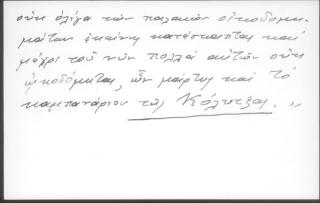 οὐκ ὀλίγα τῶν παλαιῶν οἰκοδομη-
μάτων ἐκείνη κατέσκαπται καὶ
μέχρι τοῦ νῦν πολλὰ αὐτῶν οὐκ
ᾠκοδόμηται, ὧν μάρτυς καὶ τὸ
καμπανάριον τῆς Κόλυτζας. „